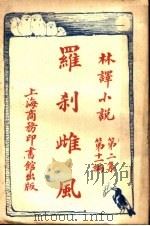 林譯小說
第二集
第十二編
羅剎雌風
上海商務印書館出版